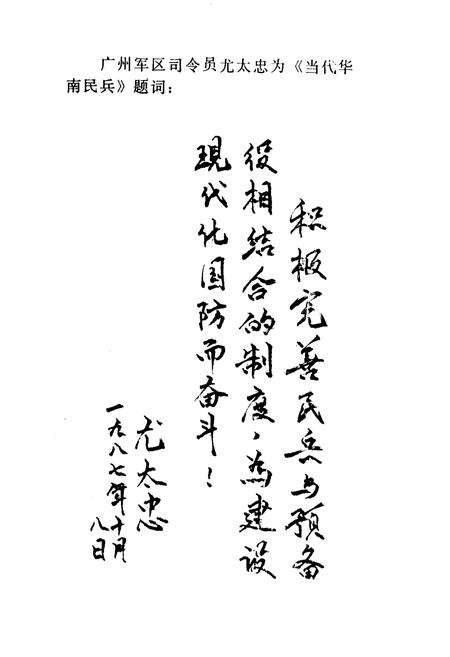 广州军区司令员尤太忠为《当代华
南民兵》题词：
积极完善民兵与预备
役相结合的制度，为建设
现代化国防而奋斗！
尤太忠
一九八七年十月
八日